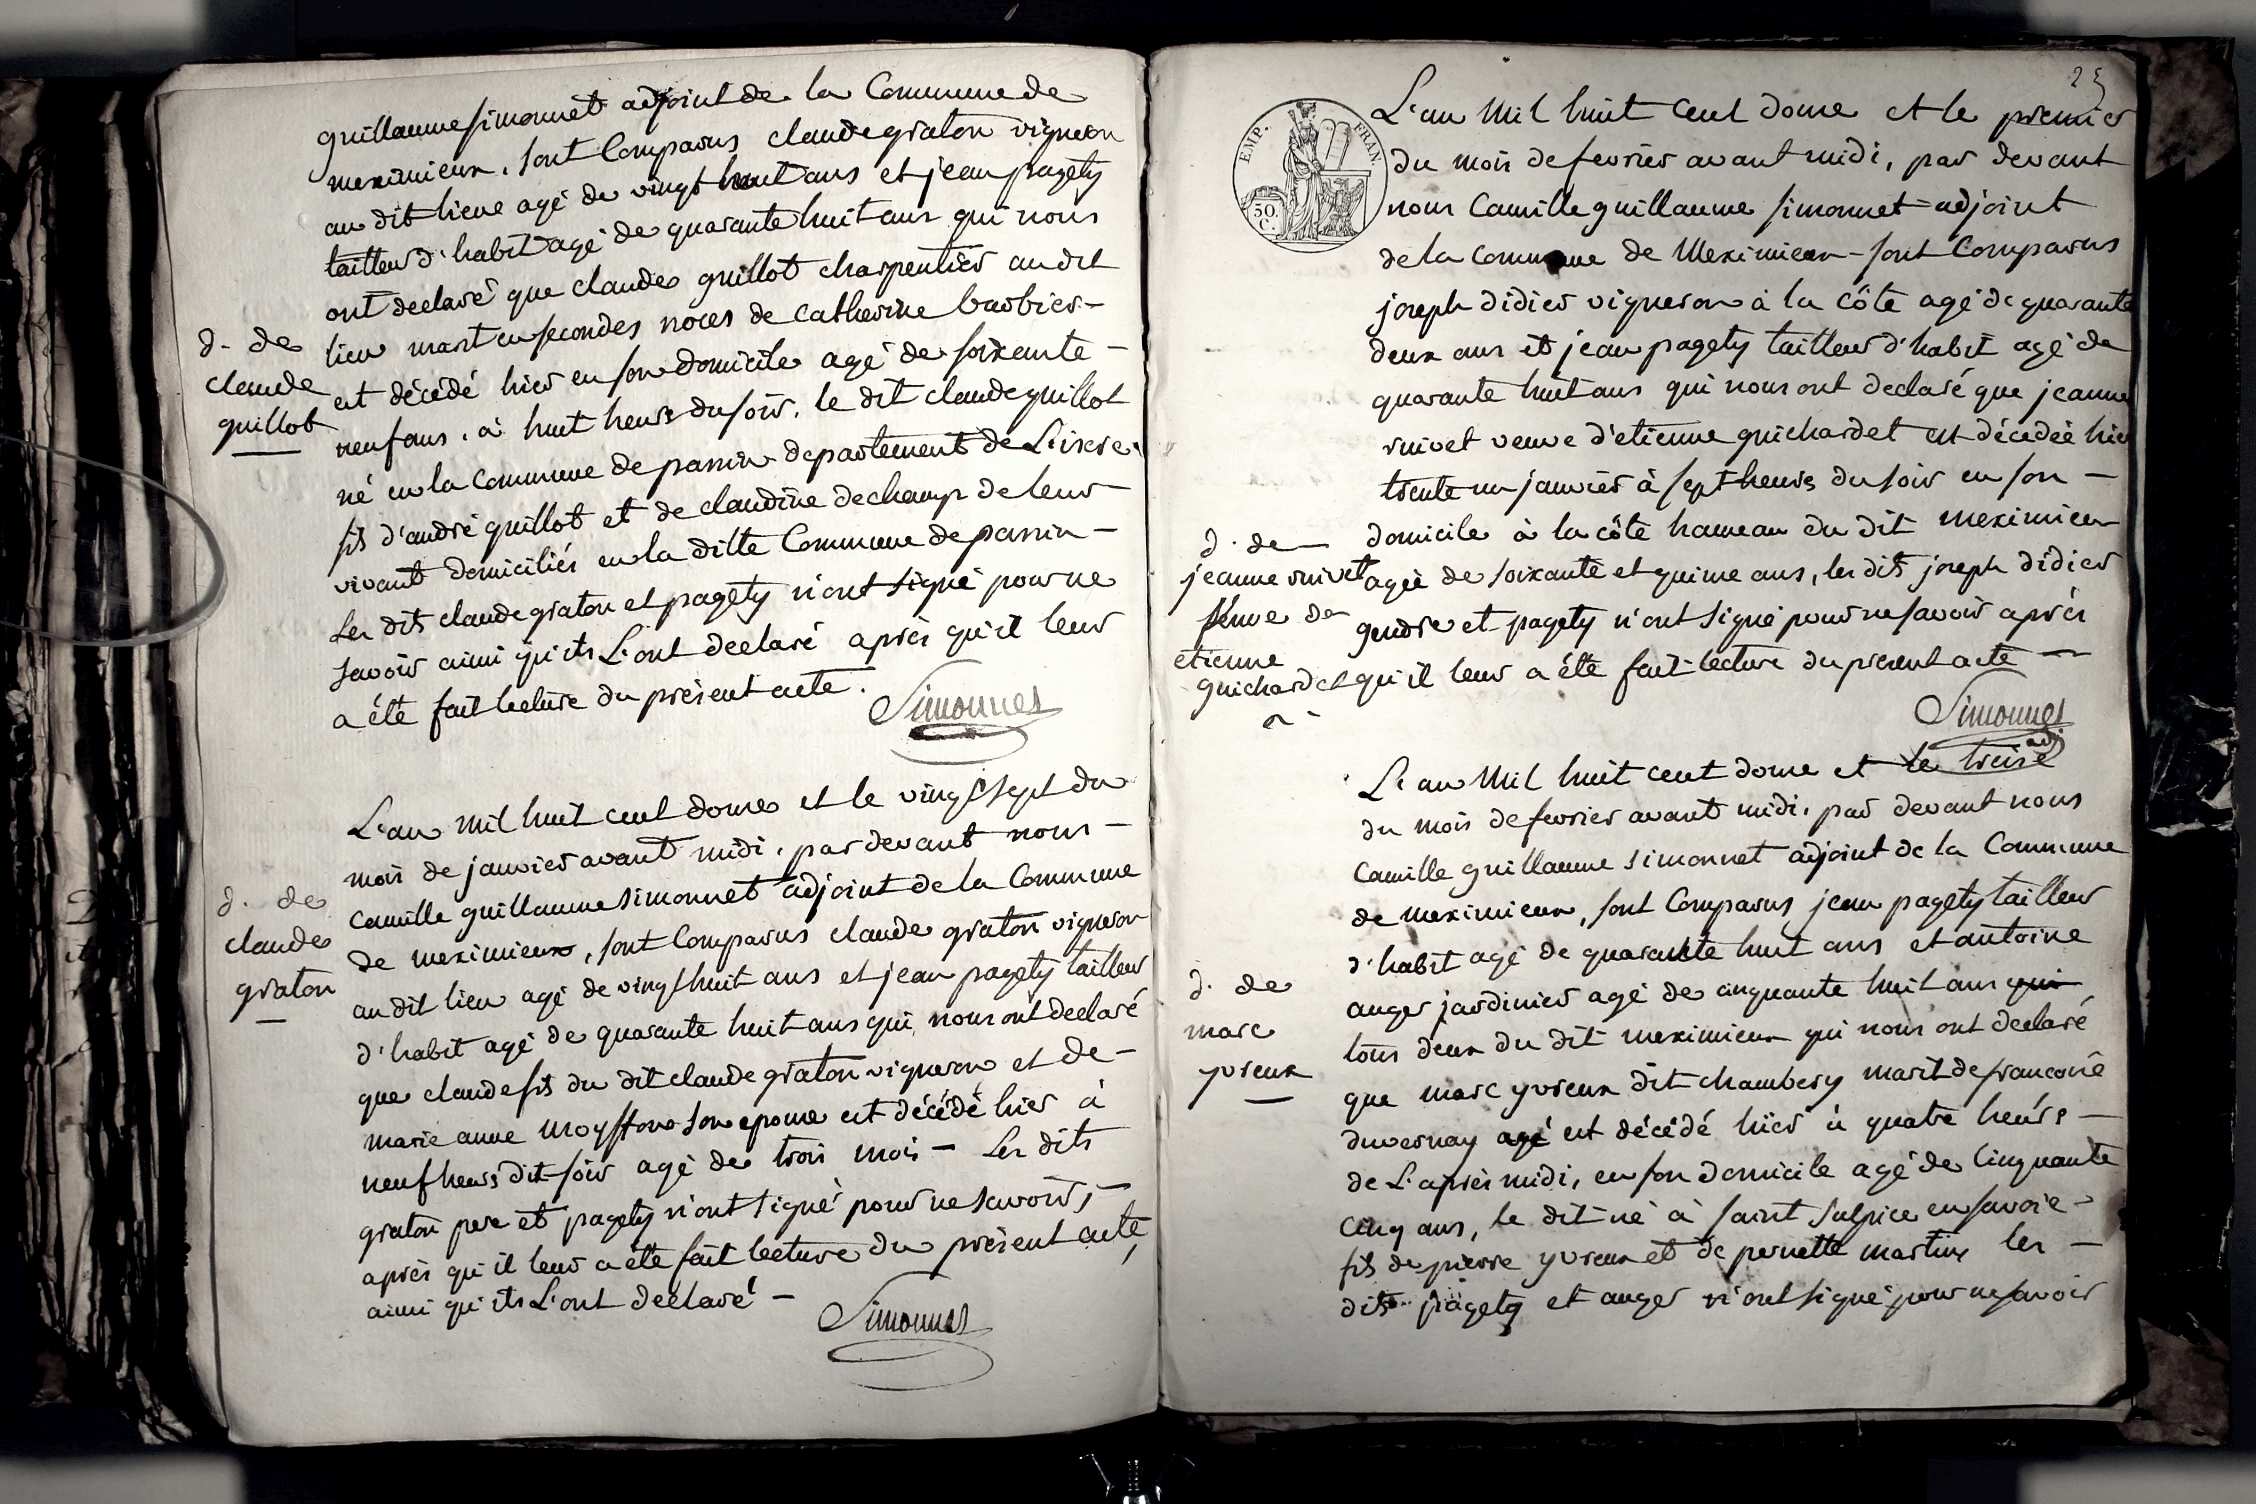 guillaume simonnet adjoint de la Commune de
meximieux, sont Comparus claude graton vigneron
au dit lieue agé de vingt huit ans et jean pagéty
tailleur d'habit agé de quarante huit ans qui nous
ont declaré que claude guillot charpentier au dit
lieu marit en secondes noces de catherine barbier -
d. de
claude
guillot
est décédé hier en son domicile agé de soixante -
neuf ans, à huit heurs du soir, le dit claude guillot
né en la Commune de passin departement de L'isere,
fils d'andré guillot et de claudine dechamp de leur
vivant domiciliés en la ditte Commune de passin -
Les dits claude graton et pagéty n'ont signé pour ne
savoir ainsi qu'ils L'ont declaré après qu'il leur
a été fait lecture du présent acte.
Simonnet
L'an mil huit cent douze et le vingt sept du
mois de janvier avant midi, par devant nous -
camille guillaume simonnet adjoint de la Commune
d. de
claude
graton
de meximieux, sont Comparus claude graton vigneron
au dit lieu agé de vingt huit ans et jean pagety tailleur
d'habit agé de quarante huit ans qui nous ont declaré
que claude fils du dit claude graton vigneron et de -
marie anne moysson son epouse est décédé hier à
neuf heurs dit soir agé de trois mois - Les dits
graton pere et pagety n'ont signé pour ne savoir, -
après qu'il leur a été fait lecture du présent acte,
ainsi qu'ils L'ont declaré -
Simonnet
25
EMP. FRAN.
50.
C.
L'an Mil huit Cent douze et le premier
du mois de fevrier avant midi, par devant
nous Camille guillaume simonnet adjoint
de la commune de Meximieux - sont Comparus
joseph didier vigneron à la côte agé de quarante
deux ans et jean pagety tailleur d'habit agé de
quarante huit ans qui nous ont declaré que jeanne
ruivet veuve d'etienne guichardet est décedée hier
trente un janvier à sept heures du soir en son -
domicile à la côte hameau du dit meximieux
d. de
jeanne ruivet
veuve de
etienne
guichardet
agée de soixante et quinze ans, les dits joseph didier
gendre et pagety n'ont signé pour ne savoir après
qu'il leur a été fait lecture du present acte -
Simonnet
adj.
L'an Mil huit cent douze et le treize
du mois de fevrier avant midi, par devant nous
Camille guillaume simonnet adjoint de la Commune
de meximieux, sont Comparus jean pagéty tailleur
d'habit agé de quarante huit ans et antoine
d. de
marc
yvreux
auger jardinier agé de cinquante huit ans qui
tous deux du dit meximieux qui nous ont declaré
que marc yvreux dit chambery marit de francoise
duvernay agé est décédé hier à quatre heurs -
de L'après midi, en son domicile agé de Cinquante
cinq ans, le dit né à saint sulpice en savoie -
fils de pierre yvreux et de pernette martin les -
dits pagety et auger n'ont signé pour ne savoir